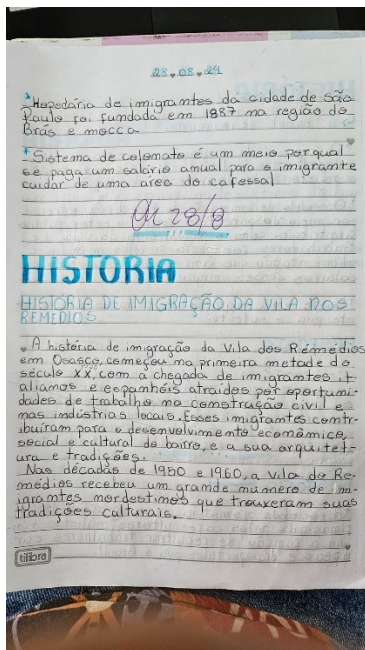 28.08.24
*Hopedária de imigrantes da cidade de são
Paulo foi fundada em 1887 na região do
Brás e mocca
*Sistema de colonato é um meio por qual
se paga um salário anual para o imigrante
cuidar de uma área do cafessal
28/8
HISTORIA
HISTÓRIA DE IMIGRAÇÃO DA VILA DOS
REMEDIOS
A história de imigração da Vila dos Remédios
em Osasco, começou na primeira metade do
século XX, com a chegada de imigrantes it-
alianos e espanhóis atraídos por oportuni-
dades de trabalho na construção civil e
nas indústrias locais. Esses imigrantes contr-
ibuíram para o desenvolvimento econômico,
social e cultural do bairro, e a sua arquitet-
ura e tradições.
Nas décadas de 1950 e 1960, a vila do Re-
médios recebeu um grande número de m-
igrantes nordestinos que trouxeram suas
tradições culturais.
tilibra